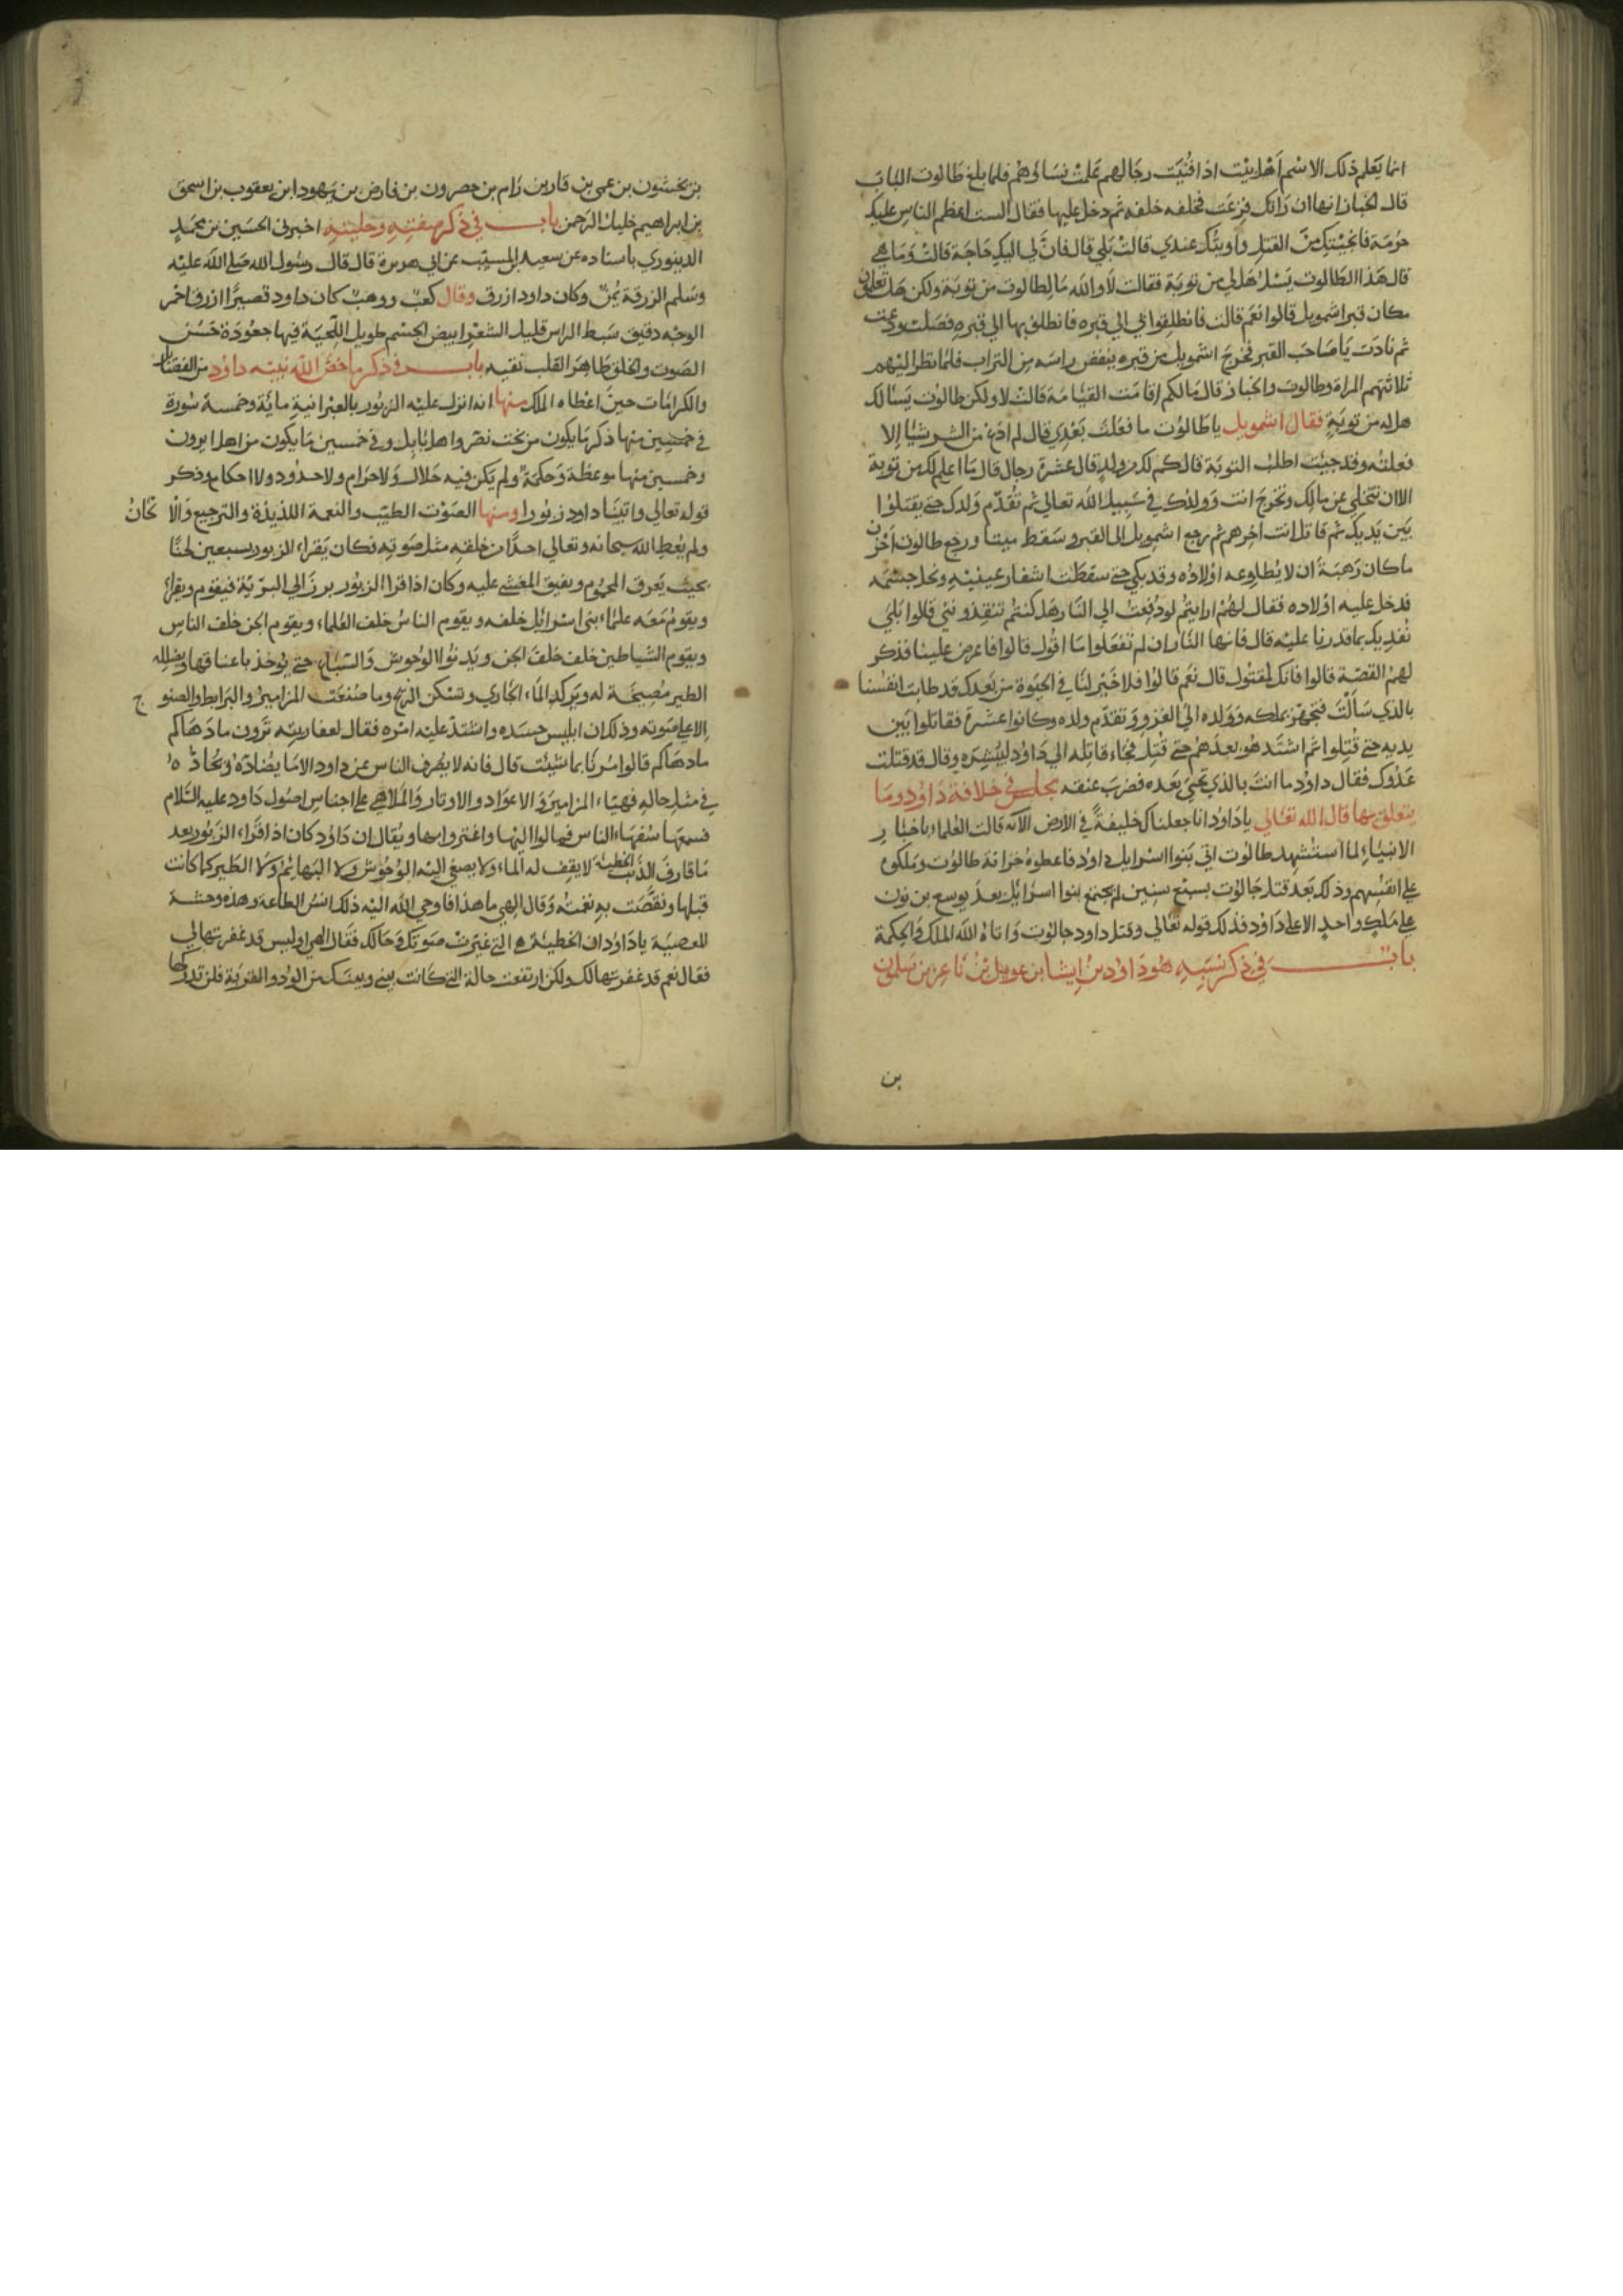 انما يعلم ذلك الاسم اهل بيت اذا فنيت رجالهم علمت نساؤهم فلما بلغ طالوت الباب
قال الخباز انها ان راتك فزعت فخلفه خلفه ثم دخل عليها فقال الست اعظم الناس عليك
حرمة فانجيتك من القتل واويتك عندي قالت بلي قال فان لي اليك حاجة قالت وما هي
قال هذا الطالوت يسل هل لي من توبة فقالت لا والله ما لطالوت من توبة ولكن هل تعلمان
مكان قبر اشمويل قالوا نعم قالت فانطلقوا بي الي قبره فانطلق بها الي قبره فصلت ودعت
ثم نادت يا صاحب القبر فخرج اشمويل من قبره ينفض راسه من التراب فلما نظر اليهم
ثلاثتهم المراة وطالوت والخباز قال ما لكم اقامت القيامة قالت لا ولكن طالوت يسالك
هل له من توبة فقال اشمويل يا طالوت ما فعلت بعدي قال لم ادع من الشر شيئا الا
فعلته وقد جيت اطلب التوبة قال كم لك من ولد قال عشرة رجال قال ما اعلم لك من توبة
الا ان تتخلي عن مالك وتخرج انت وولدك في سبيل الله تعالي ثم تقدم ولدك حتي يقتلوا
بين يديك ثم قاتل انت اخرهم ثم رجع اشمويل الي القبر وسقط ميتا ورجع طالوت احزن
ما كان رهبة ان لا يطاوعه اولاده وقد بكي حتي سقطت اشفار عينيه ونحل جسمه
فدخل عليه اولاده فقال لهم ارايتم لو دفعت الي النار هل كنتم تنقذونني قالوا بلي
نفديك بما قدرنا عليه قال فانها النار ان لم تفعلوا ما اقول قالوا فاعرض علينا فذكر
لهم القصة قالوا فانك لمقتول قال نعم قالوا فلا خير لنا في الحيوة من بعدك قد طابت انفسنا
بالذي سالت فتجهز بملكه وولده الي الغزو وتقدم ولده وكانوا عشرة فقاتلوا بين
يديه حتي قتلوا ثم اشتد هو بعدهم حتي قتل فجاء قاتله الي داود ليبشره وقال قد قتلت
عدوك فقال داود ما انت بالذي تحيي بعده فضرب عنقه مجلس في خلافة داود وما
يتعلق بها قال الله تعالي يا داود انا جعلناك خليفة في الارض الاية قالت العلماء باخبار
الانبياء لما استشهد طالوت اتي بنوا اسرايل داود فاعطوه خزانة طالوت وملكوه
علي انفسهم وذلك بعد قتل جالوت بسبع سنين لم يجتمع بنوا اسرائل بعد يوسع بن نون
علي ملك واحد الا علي داود فذلك قوله تعالي وقتل داود جالوت واتاه الله الملك والحكمة
باب في ذكر نسبه هو داود بن ايشا بن عوبيل بن باعز بن سلمون
بن
بن يخشون بن عمي بن قارب بن رام بن حصرون بن فارض بن يهودا بن يعقوب بن اسحق
بن ابراهيم خليل الرحمن باب في ذكر صفته وحليته اخبرني الحسين بن محمد
الدينوري باسناده عن سعيد بن المسيب عن ابي هريرة قال قال رسول الله صلي الله عليه
وسلم الزرقة يمن وكان داود ازرق وقال كعب ووهب كان داود قصيرا ازرق احمر
الوجه دقيق سبط الراس قليل الشعر ابيض الجسم طويل اللحية فيها جعودة حسن
الصوت والخلق طاهر القلب تقيه باب في ذكر ما خص الله نبيه داود من الفضائل
والكرامات حين اعطاه الملك منها انه انزل عليه الزبور بالعبرانية ماية وخمسة سورة
في خمسين منها ذكر ما يكون من بخت نصر واهل بابل وفي خمسين ما يكون من اهل ايرون
وخمسين منها موعظة وحكمة ولم يكن فيه حلال ولا حرام ولا حدود ولا احكام وذكر
قوله تعالي واتينا داود زبورا ومنها الصوت الطيب والنعمة اللذيذة والترجيع والالحان
ولم يعط الله سبحانه وتعالي احدا من خلقه مثل صوته فكان يقراء الزبور بسبعين لحنا
بحيث يعرق المحموم ويفيق المغشي عليه وكان اذا قرا الزبور برز الي البرية فيقوم ويقراء
ويقوم معه علماء بني اسرائل خلفه ويقوم الناس خلف العلماء ويقوم الجن خلف الناس
ويقوم الشياطين خلف خلف الجن ويدنوا الوحوش والسباع حتي يوخذ باعناقها ويظله
الطير مصيخة له ويركد الماء الجاري وتسكن الريح وما صنعت المزامير والبرابط والصنوج
الا علي صوته وذلك ان ابليس حسده واشتد عليه امره فقال لعفاريته ترون ما دهاكم
ما دهاكم قالوا مرنا بما شيت قال فانه لا يصرف الناس عن داود الا ما يضاده ويحاده
في مثل حاله فهيا المزامير والاعواد والاوتار والملاهي علي اجناس اصول داود عليه السلام
فسمعها سفهاء الناس فمالوا اليها واغتروا بها ويقال ان داود كان اذا قراء الزبور بعد
ما قارف الذنب الخطية لا يقف له الماء ولا يصغي اليه الوحوش ولا البهايم ولا الطير كما كانت
قبلها ونقصت به نغمته وقال الهي ما هذا فاوحي الله اليه ذلك انس الطاعة وهذه وحشة
المعصية يا داود ان الخطيئة هي التي غيرت صوتك وحالك فقال الهي اوليس قد غفرتها لي
فقال نعم قد غفرتها لك ولكن ارتفعت حالة التي كانت بيني وبينك من الود والقربة فلن تدركها